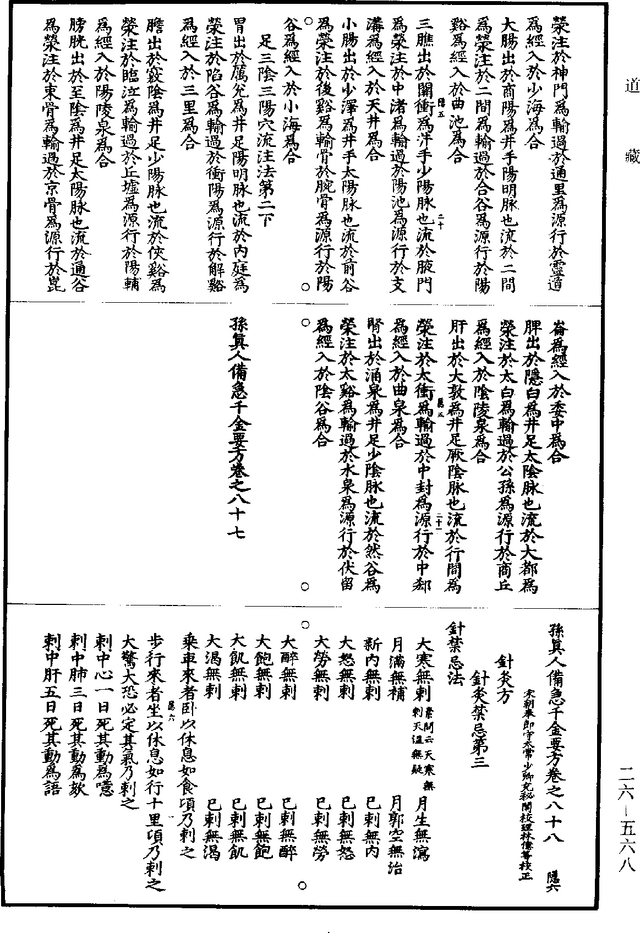 道藏
滎注於神門爲輸過於通里爲源行於靈道
爲經入於少海爲合
大腸出於商陽爲井手陽明脉也流於二間
爲滎注於三間爲輸過於合谷爲源行於陽
谿爲經入於曲池爲合
三膲出於關衝爲井手少陽脉也流於腋門
爲滎注於中渚爲輸過於陽池爲源行於支
溝爲經入於天井爲合
小腸出於少澤爲井手太陽脉也流於前谷
爲滎注於後谿爲輸過於腕骨爲源行於陽
谷爲經入於小海爲合
足三陰三陽穴流注法第二下
胃出於厲兌爲井足陽明脉也流於內庭爲
滎注於陷谷爲輸過於衝陽爲源行於解谿
爲經入於三里爲合
膽出於竅陰爲井足少陽脉也流於俠谿爲
滎注於臨泣爲輸過於丘墟爲源行於陽輔
爲經入於陽陵泉爲合
膀胱出於至陰爲井足太陽脉也流於通谷
爲滎注於束骨爲輸過於京骨爲源行於崑
崙爲經入於委中爲合
脾出於隱白爲井足太陰脉也流於大都爲
滎注於太白爲輸過於公孫爲源行於商丘
爲經入於陰陵泉爲合
肝出於大敦爲井足厥陰脉也流於行間爲
滎注於太衝爲輸過於中封爲源行於中郄
爲經入於曲泉爲合
腎出於涌泉爲井足少陰脉也流於然谷爲
滎注於太谿爲輸過於水泉爲源行於伏留
爲經入於陰谷爲合
孫真人備急千金要方卷之八十七
孫真人備急千金要方卷之八十八 隱六
宋朝奉郎守太常少卿充祕閣校理林億等校正
針灸方
針灸禁忌第三
針禁忌法
大寒無刺 素問云天寒無刺天溫無疑 月生無瀉
月滿無補 月郭空無治
新內無刺 已刺無內
大怒無刺 已刺無怒
大勞無刺 已刺無勞
大醉無刺 已刺無醉
大飽無刺 已刺無飽
大飢無刺 已刺無飢
大渴無刺 已刺無渴
乘車來者臥以休息如食頃乃刺之
步行來者坐以休息如行十里頃乃刺之
大驚大恐必定其氣乃刺之
刺中心一日死其動爲噫
刺中肺三日死其動爲欬
刺中肝五日死其動爲語
二六—五六八